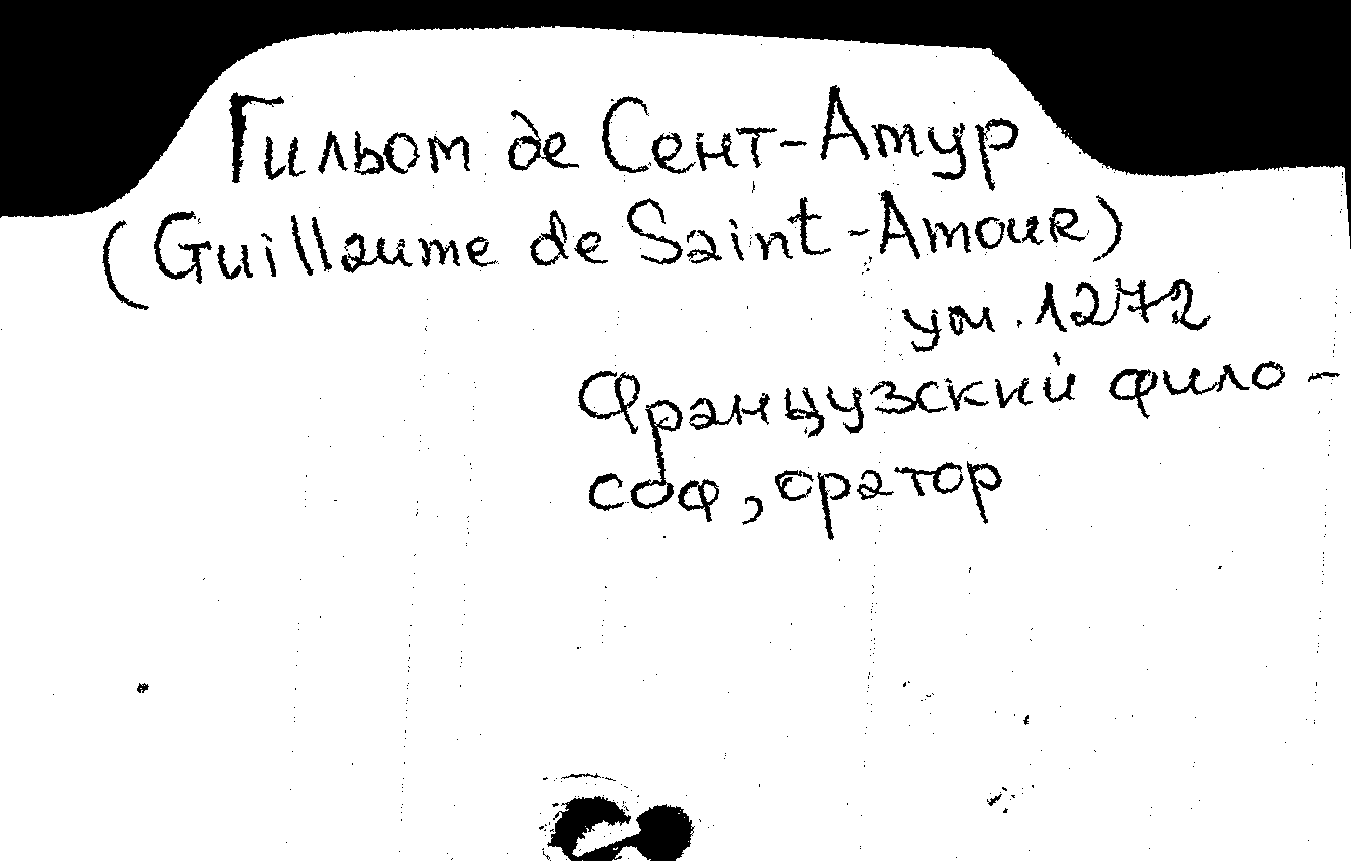 Гильом де Сент-Амур
(Guillaume de Saint-Amour)
ум. 1272
Французский фило-
соф, оратор